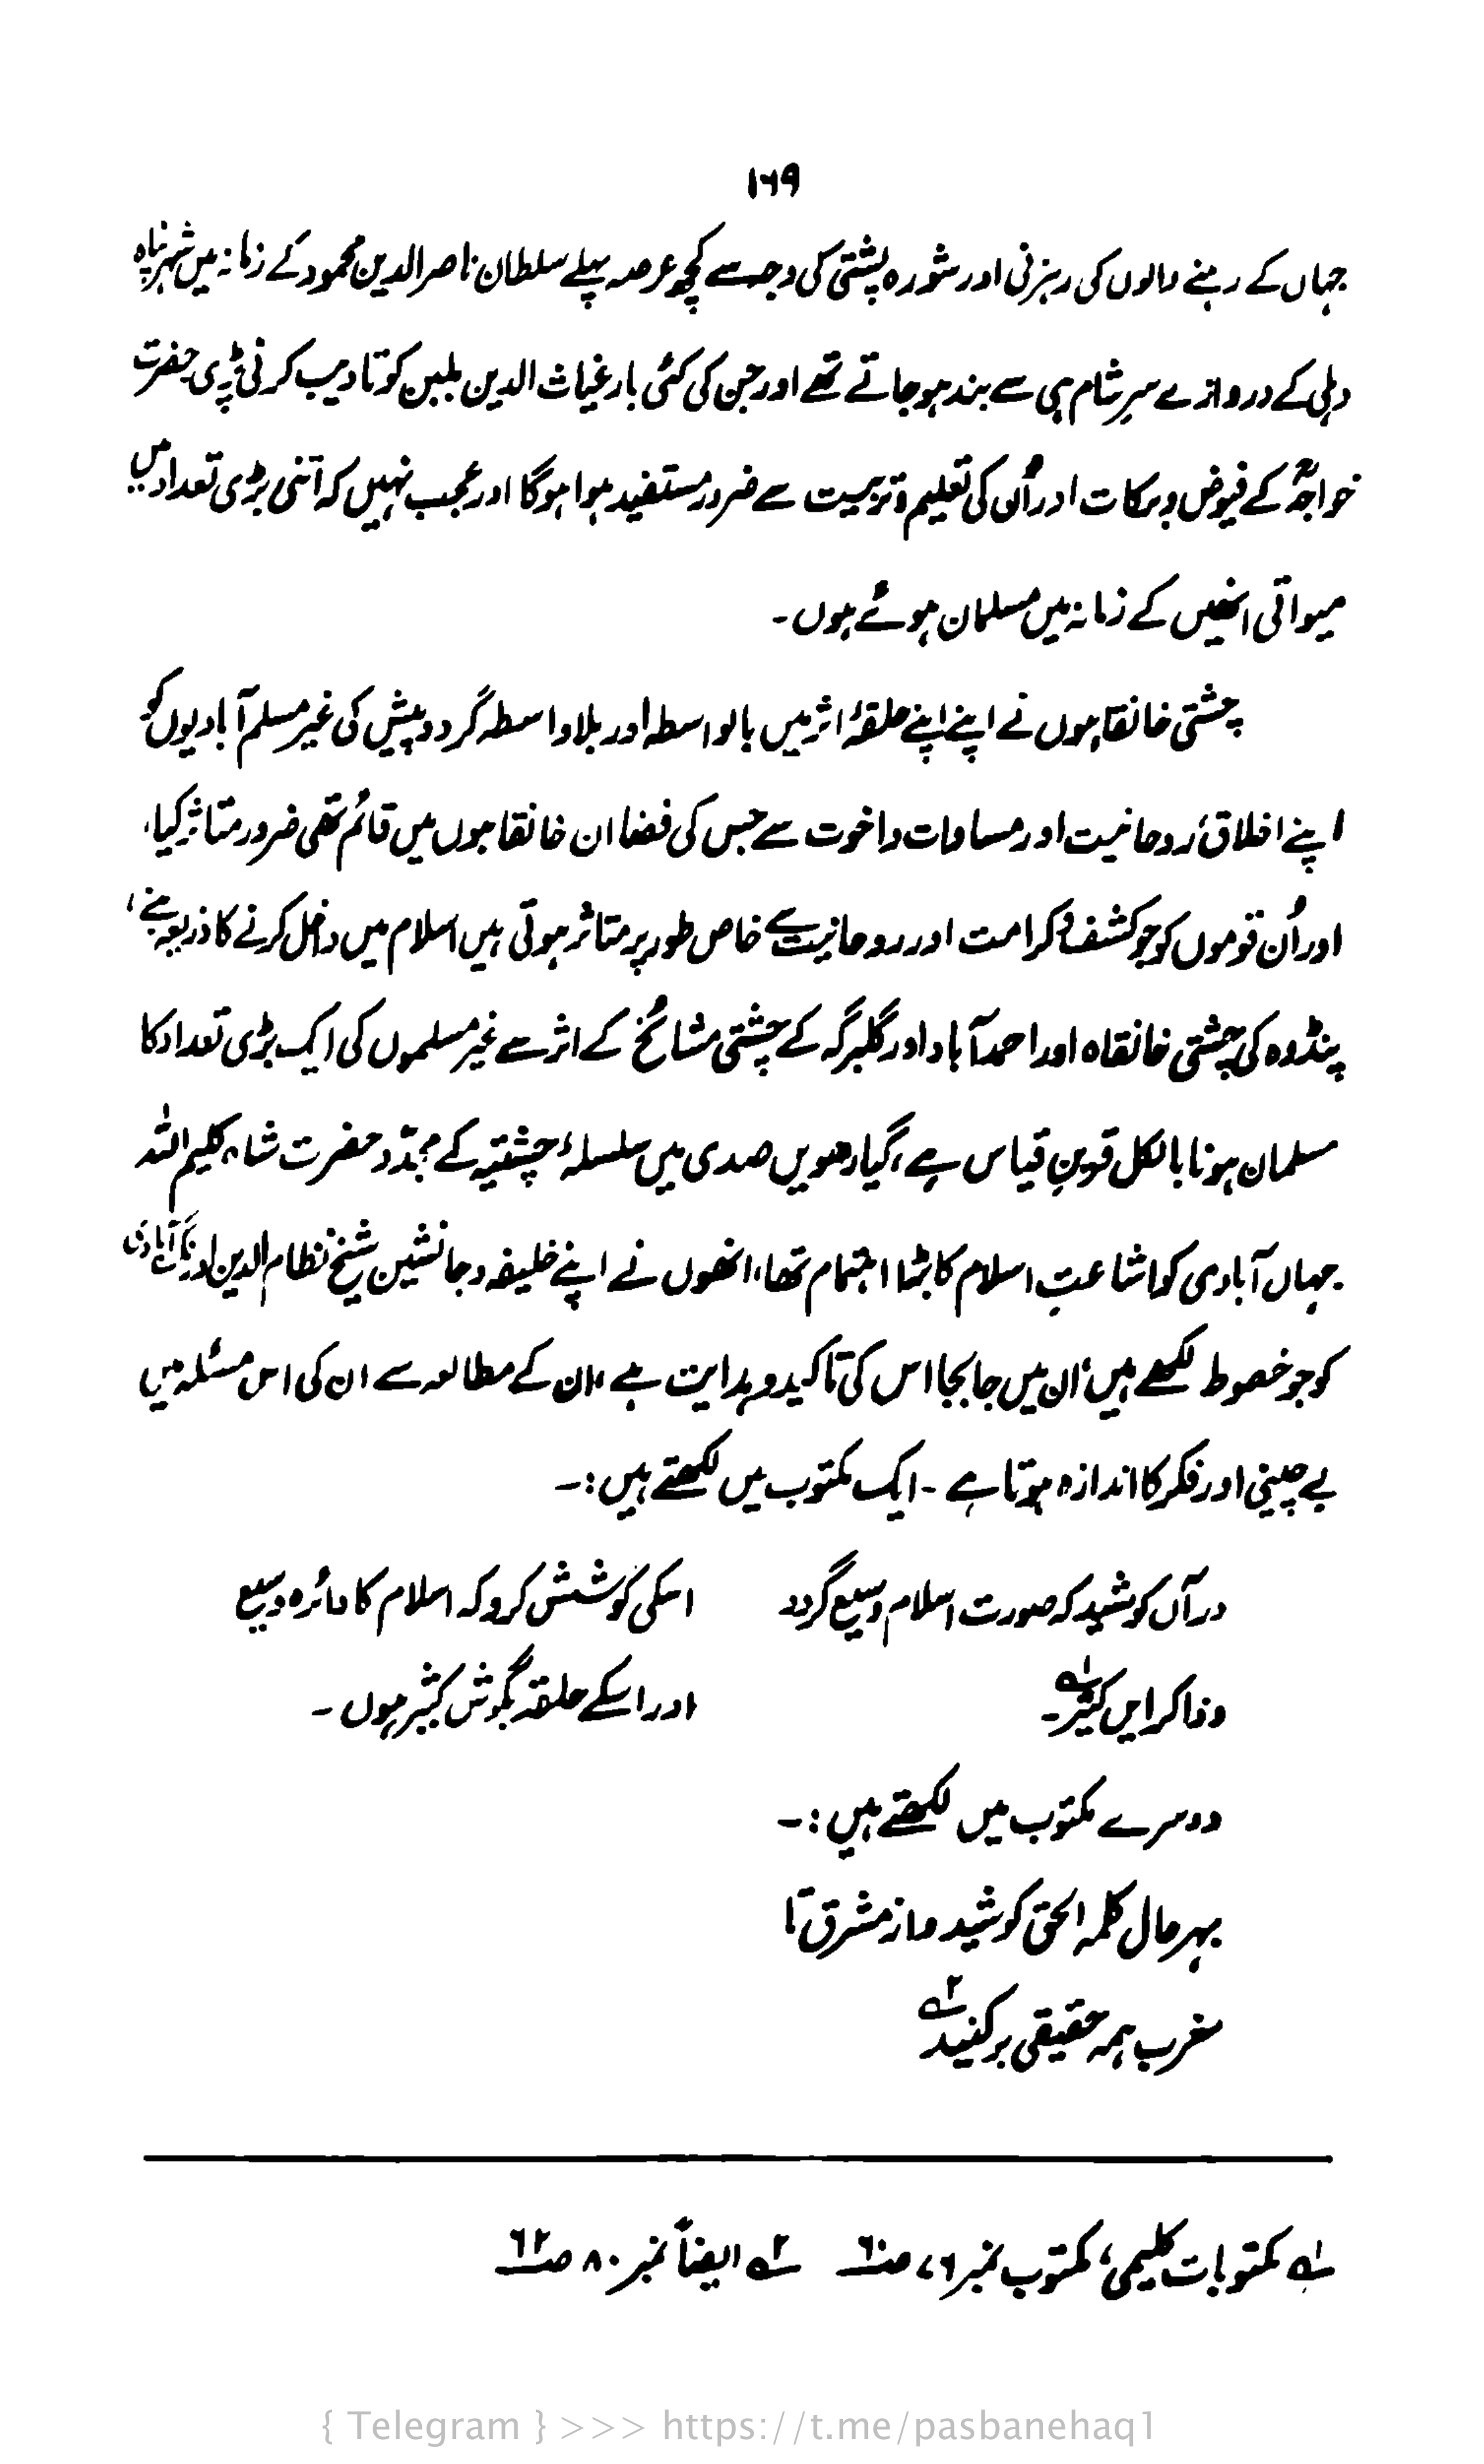 ۱۶۹
جہاں کے رہنے والوں کی رہزنی اور شورہ پشتی کی وجہ سے کچھ عرصہ پہلے سلطان ناصر الدین محمود کے زمانہ میں شہر پناہ
دہلی کے دروازے سرِ شام ہی سے بند ہو جاتے تھے اور جن کی کئی بار غیاث الدین بلبن کو تادیب کرنی پڑی حضرت
خواجہؒ کے فیوض و برکات اور اُن کی تعلیم و تربیت سے ضرور مستفید ہوا ہوگا اور عجب نہیں کہ اتنی بڑی تعداد میں
میواتی انھیں کے زمانہ میں مسلمان ہوئے ہوں۔
چشتی خانقاہوں نے اپنے اپنے حلقۂ اثر میں بالواسطہ اور بلا واسطہ گرد و پیش کی غیر مسلم آبادیوں کو
اپنے اخلاق، روحانیت اور مساوات و اخوت سے جس کی فضا ان خانقاہوں میں قائم تھی ضرور متاثر کیا،
اور اُن قوموں کو جو کشف و کرامت اور روحانیت سے خاص طور پر متاثر ہوتی ہیں اسلام میں داخل کرنے کا ذریعہ بنے،
پنڈوہ کی چشتی خانقاہ اور احمد آباد اور گلبرگہ کے چشتی مشائخ کے اثر سے غیر مسلموں کی ایک بڑی تعداد کا
مسلمان ہونا بالکل قرینِ قیاس ہے، گیارھویں صدی میں سلسلۂ چشتیہ کے مجدّد حضرت شاہ کلیم اللہ
جہاں آبادی کو اشاعتِ اسلام کا بڑا اہتمام تھا، انھوں نے اپنے خلیفہ و جانشین شیخ نظام الدین اورنگ آبادی
کو جو خطوط لکھے ہیں، اُن میں جابجا اس کی تاکید و ہدایت ہے، ان کے مطالعہ سے ان کی اس مسئلہ میں
بے چینی اور فکر کا اندازہ ہوتا ہے۔ ایک مکتوب میں لکھتے ہیں:۔
درآں کوشید کہ صورت اسلام وسیع گردد
وذاکر ایں کثیر۔ ؂۱
اسکی کوشش کرو کہ اسلام کا دائرہ وسیع
اور اسکے حلقہ بگوش کثیر ہوں۔
دوسرے مکتوب میں لکھتے ہیں:۔
بہرحال کلمہ الحق کوشید و از مشرق تا
مغرب ہمہ حقیقی برکنید ؂۲
؂۱ مکتوبات کلیمی، مکتوب نمبر ۷۶، صـ۶۰ ؂۲ ایضاً نمبر ۸۰ صـ۶۲
{ Telegram } >>> https://t.me/pasbanehaq1